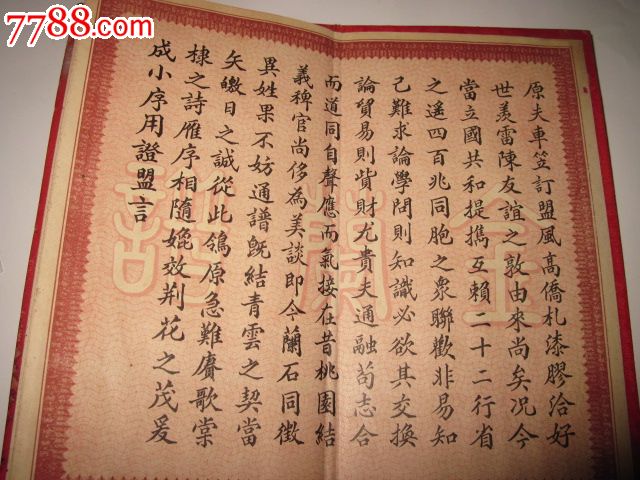 7788.com
原夫車笠訂盟風高僑札漆膠洽好
世羨雷陳友誼之敦由來尚矣况今
當立國共和提擕互賴二十二行省
之遥四百兆同胞之衆聯歡非易知
己難求論學問則知識必欲其交換
論貿易則貲財尤貴夫通融苟志合
而道同自聲應而氣接在昔桃園結
義稗官尚侈為美談即今蘭石同徵
異姓果不妨通譜旣結青雲之契當
矢皦日之誠從此鴒原急難賡歌棠
棣之詩雁序相隨媲效荆花之茂爰
成小序用證盟言
金蘭譜